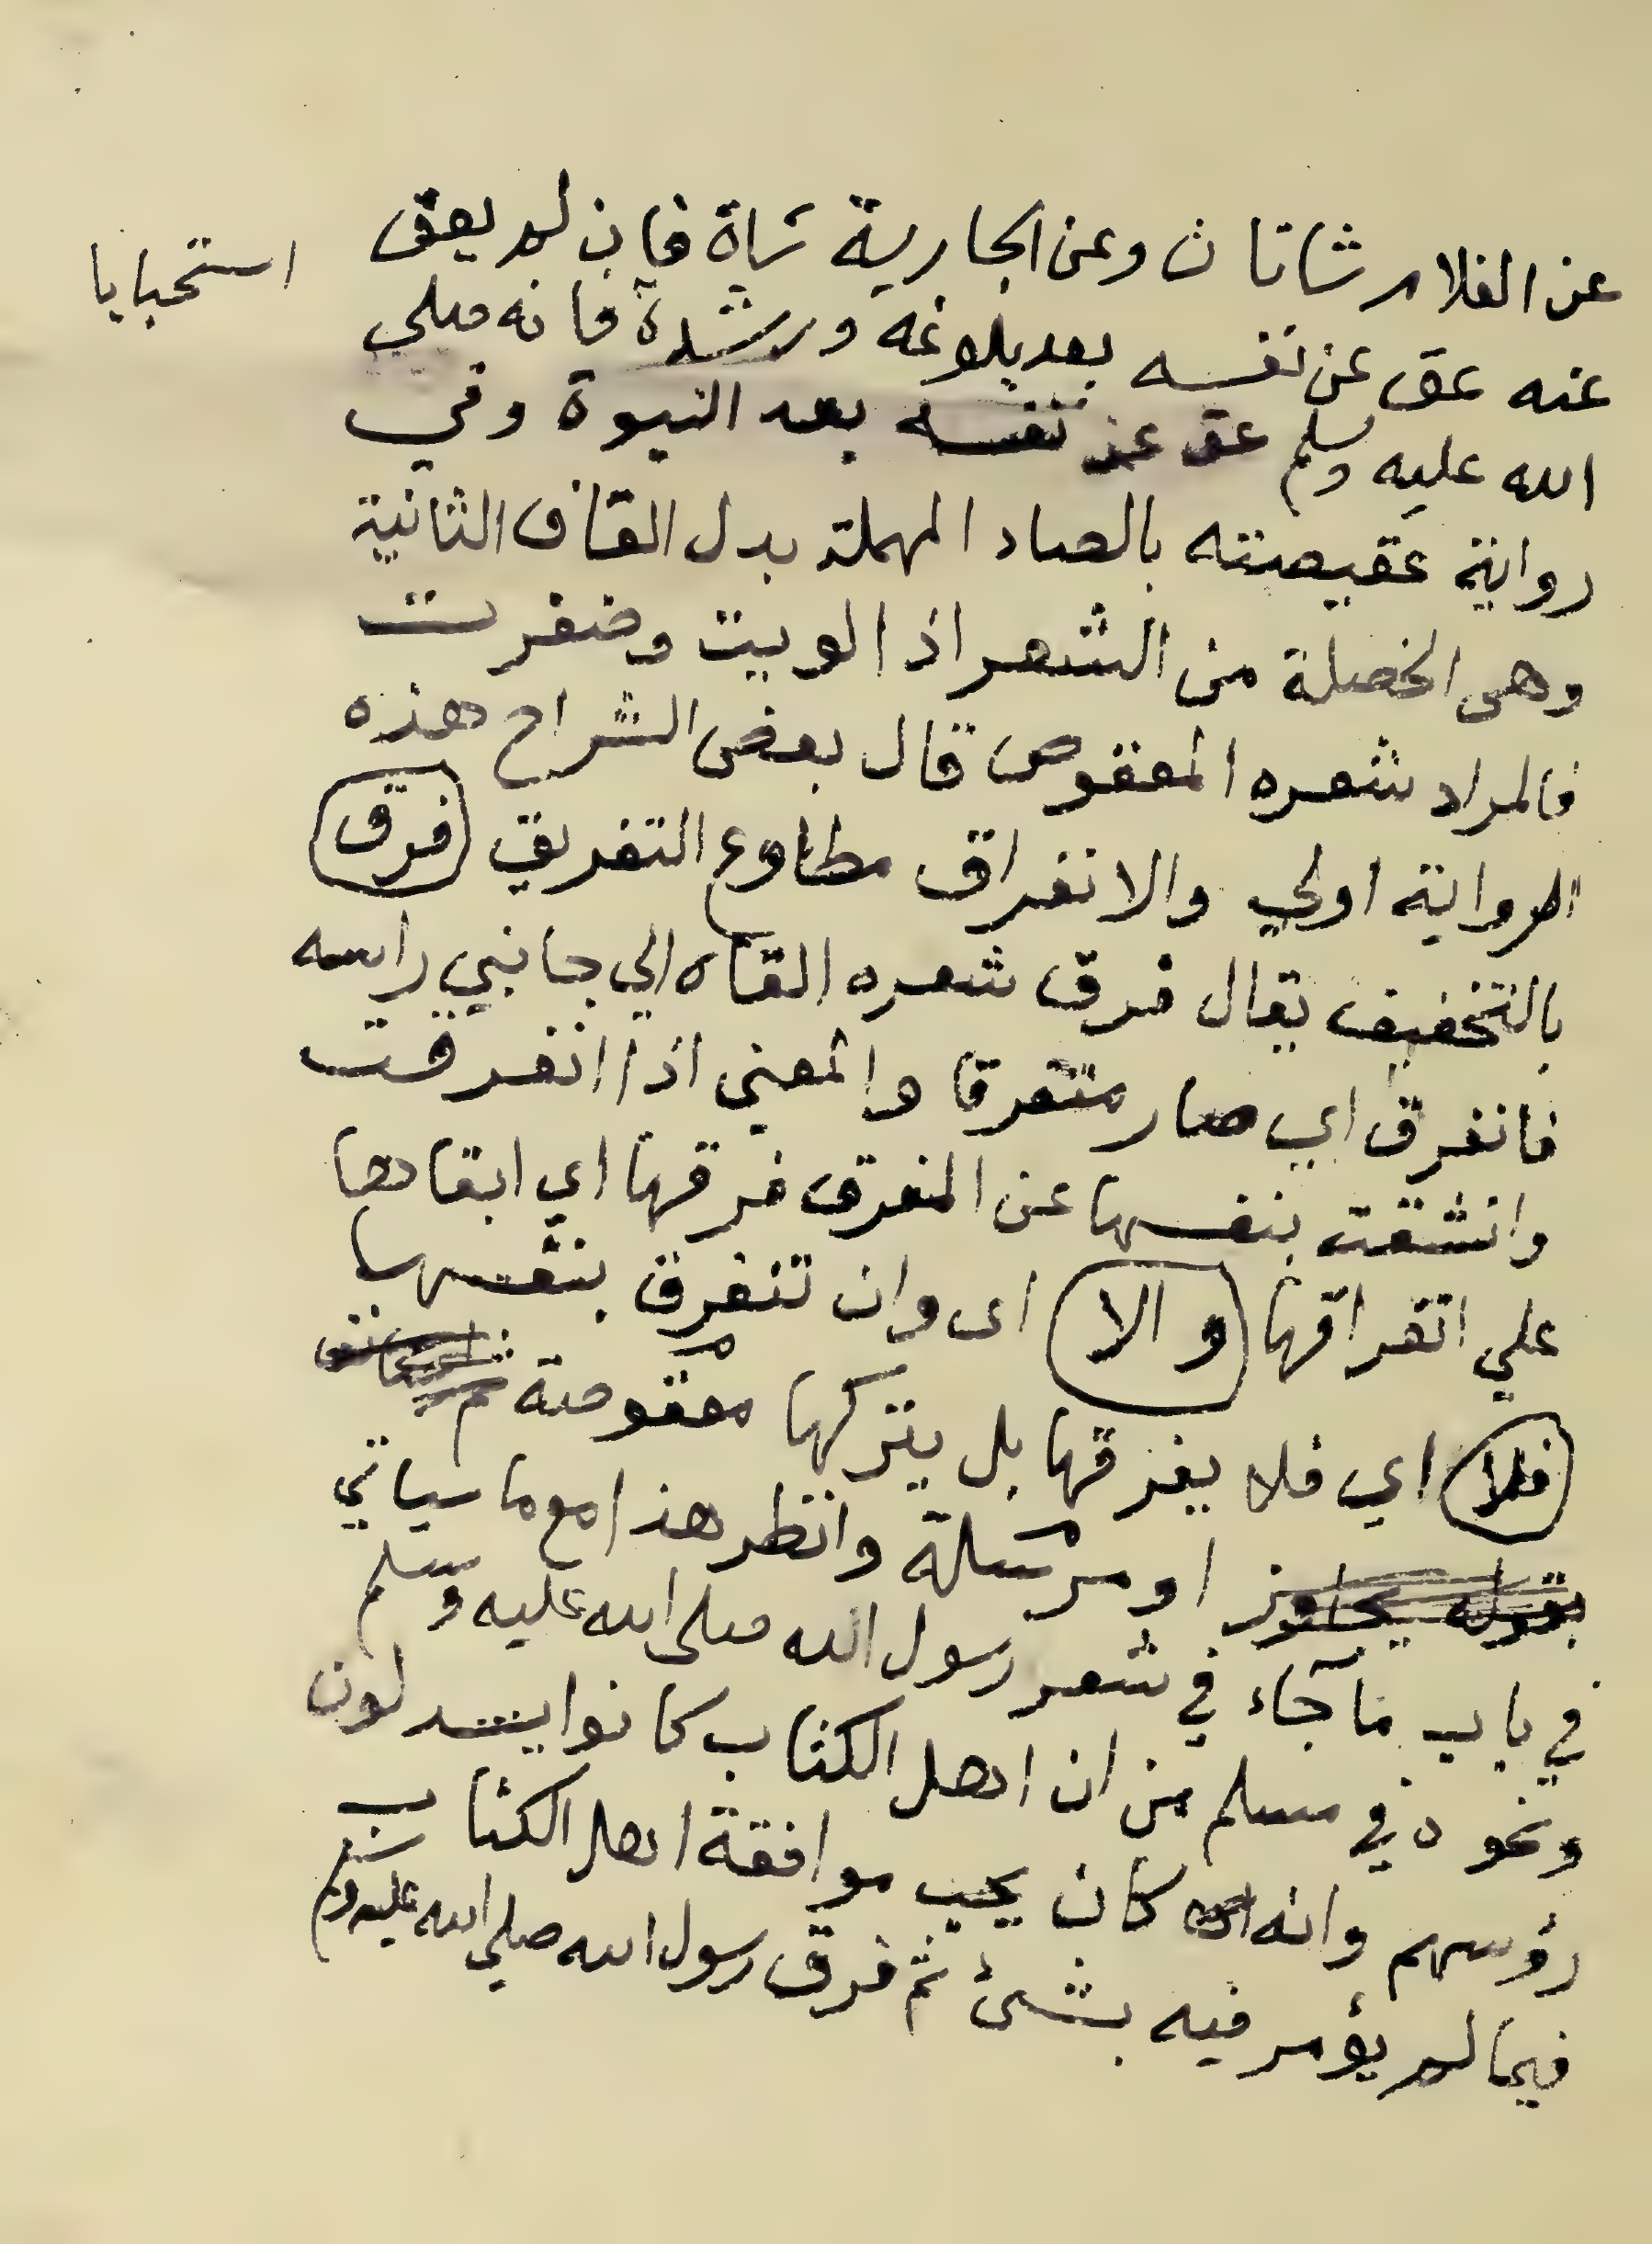 عن الغلام شاتان وعن الجارية شاة فان لم يعق
استحبابا
عنه عق عن نفسه بعد بلوغه ورشده فانه صلي
الله عليه وسلم عق عن نفسه بعد النبوة وفي
رواية عقيصته بالصاد المهملة بدل القاف الثانية
وهي الخصلة من الشعر اذ الويت وضفرت
فالمراد شعره المعقوص قال بعض الشراح هذه
الرواية اولي والانفراق مطاوع التفريق فرق
بالتخفيف يقال فرق شعره القاه الي جانبي راسه
فانفرق اي صار متفرقا والمعني اذا انفرقت
وانشقت بنفسها عن المفرق فرقها اي ابقاها
علي انفراقها والا اى وان تنفرق بنفسها
فلا اي فلا يفرقها بل يتركها معقوصة
او مرسلة وانظر هذا مع ما سياتي
في باب ما جآء في شعر رسول الله صلى الله عليه وسلم
ونحوه في مسلم من ان اهل الكتاب كانوا يسدلون
رؤسهم وانه كان يحب موافقة اهل الكتاب
فيما لم يؤمر فيه بشئ ثم فرق رسول الله صلي الله عليه وسلم